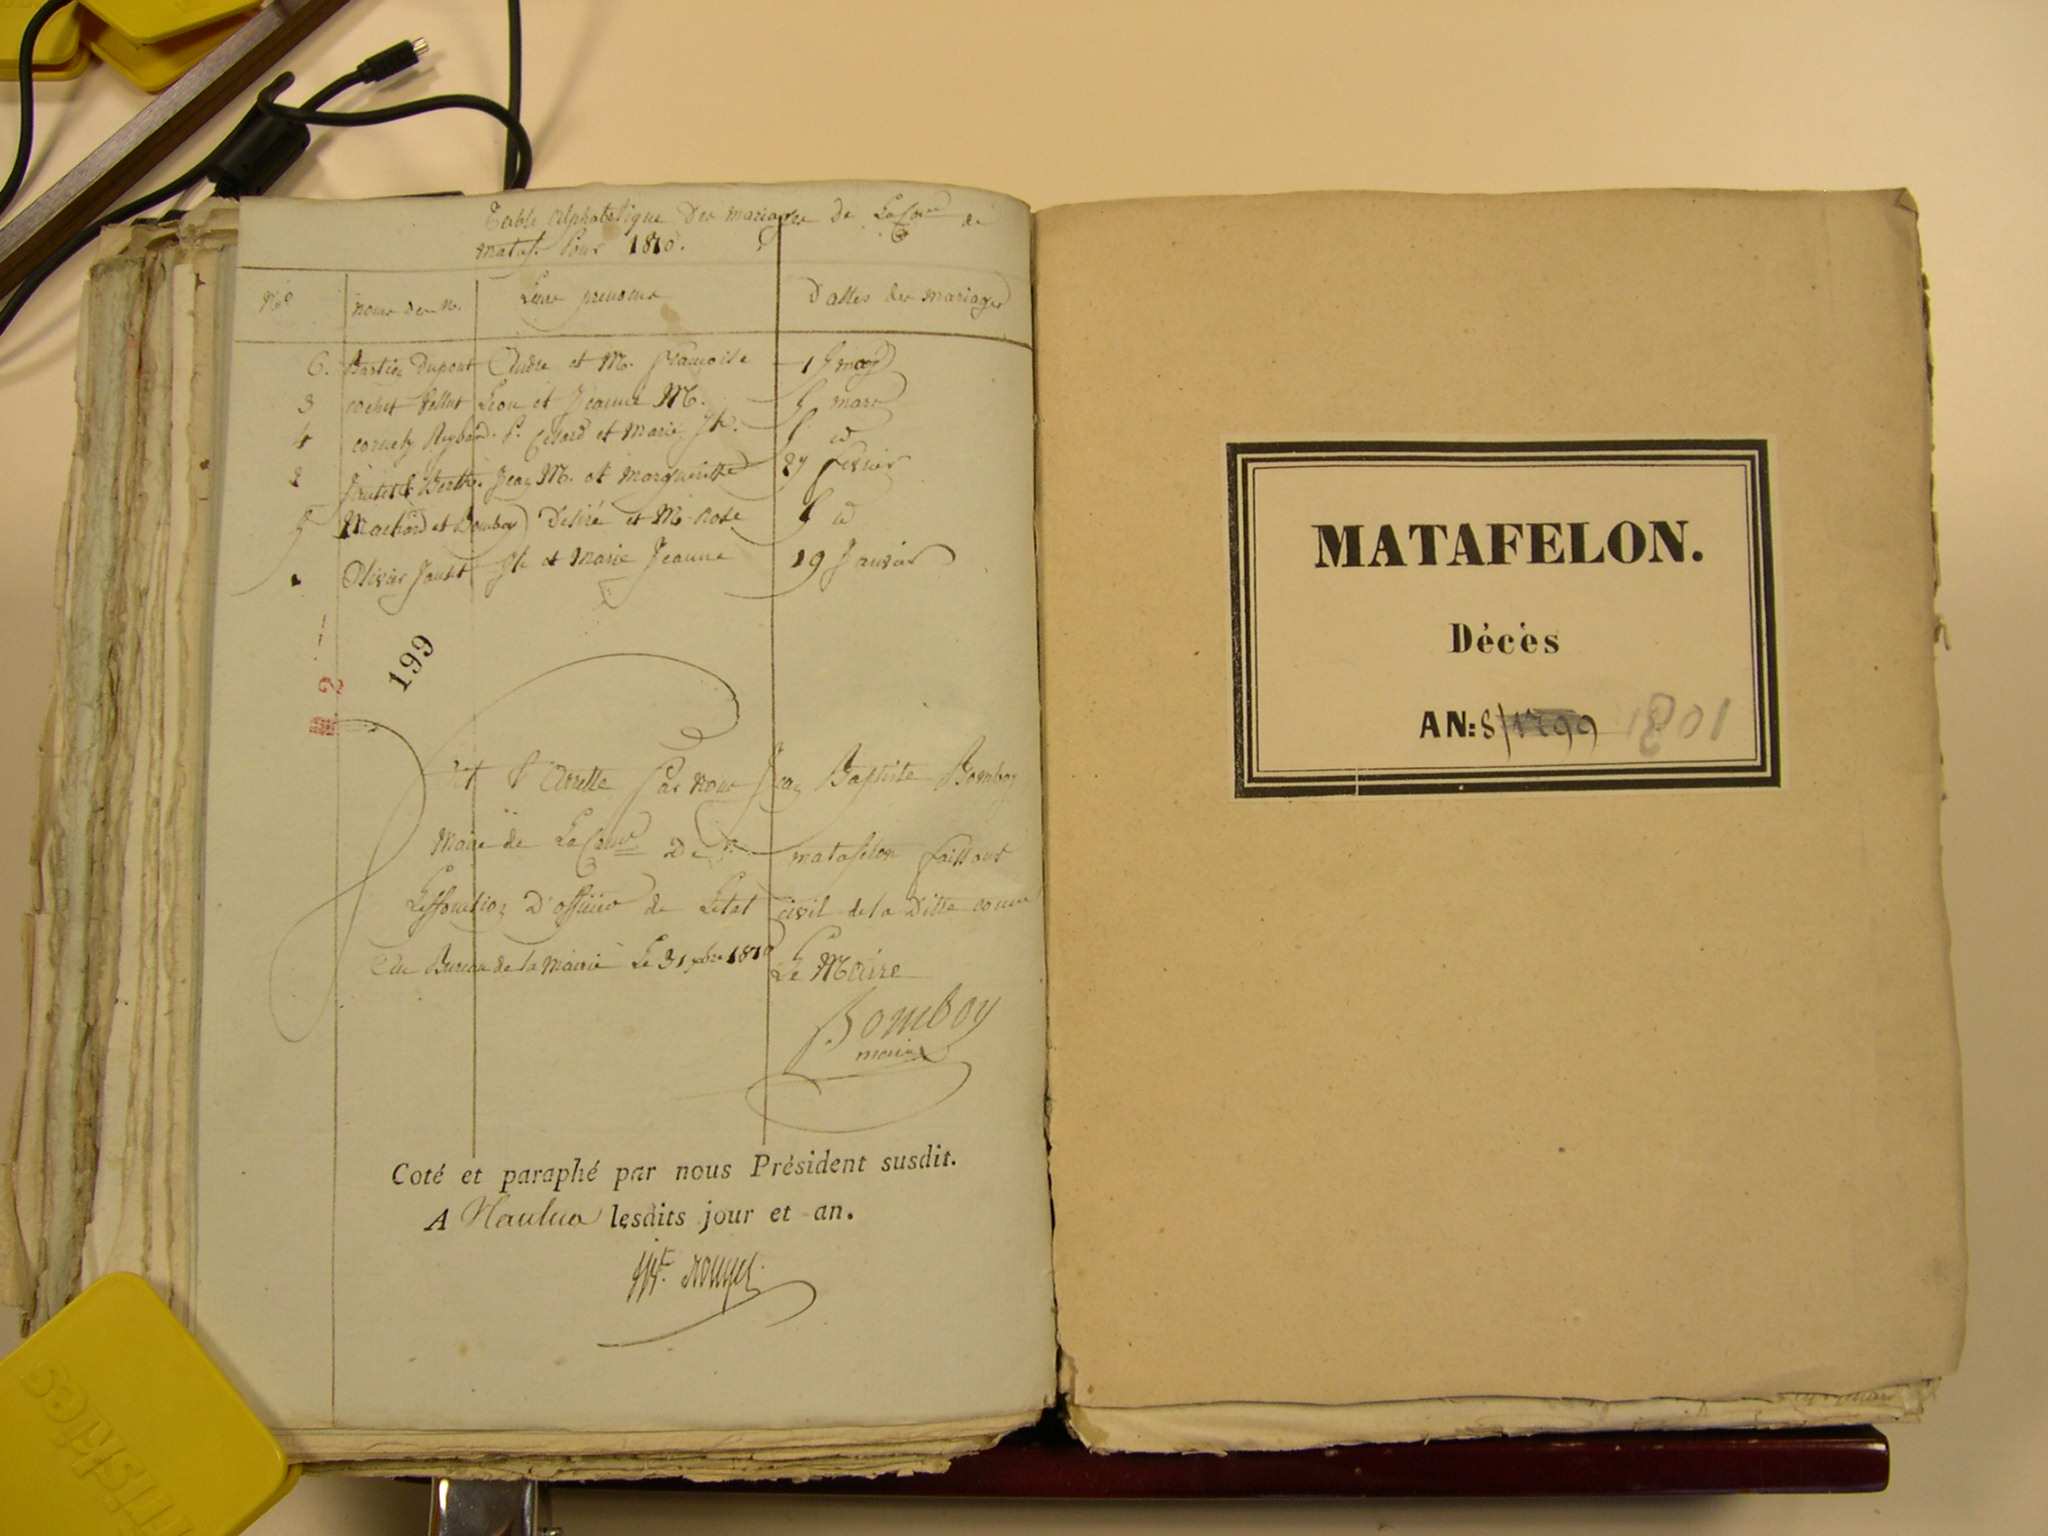 Table alphabetique Des mariages de La Com de
mataf. Pour 1810.
Nos
noms des m.
Leurs prenoms
Dattes des mariages
6. Bastien Dupont Andre et M. françoise 1 may
3 cochet Pellet Leon et Jeanne M. 5 mars
4 Reybard. P. Cezard et Marie Jh. id
2 Berth. Jean M. et Margueritte 27 fevrier
5 Machard et Bomboy Desiré et M. Rose id
1 Olivier Jantet Jh et Marie Jeanne 19 Janvier
199
2
Arrette Par nous Jean Baptiste Bomboy
Maire de La Com De matafelon faissant
Les fonction D'officier de Letat civil de la Ditte comm
Au Bureau de la Mairie Le 31 xbre 1810
Le Maire
Bomboy
maire
Coté et paraphé par nous Président susdit.
A Nantua lesdits jour et an.
MATAFELON.
Décès
AN: 8/1799 1801